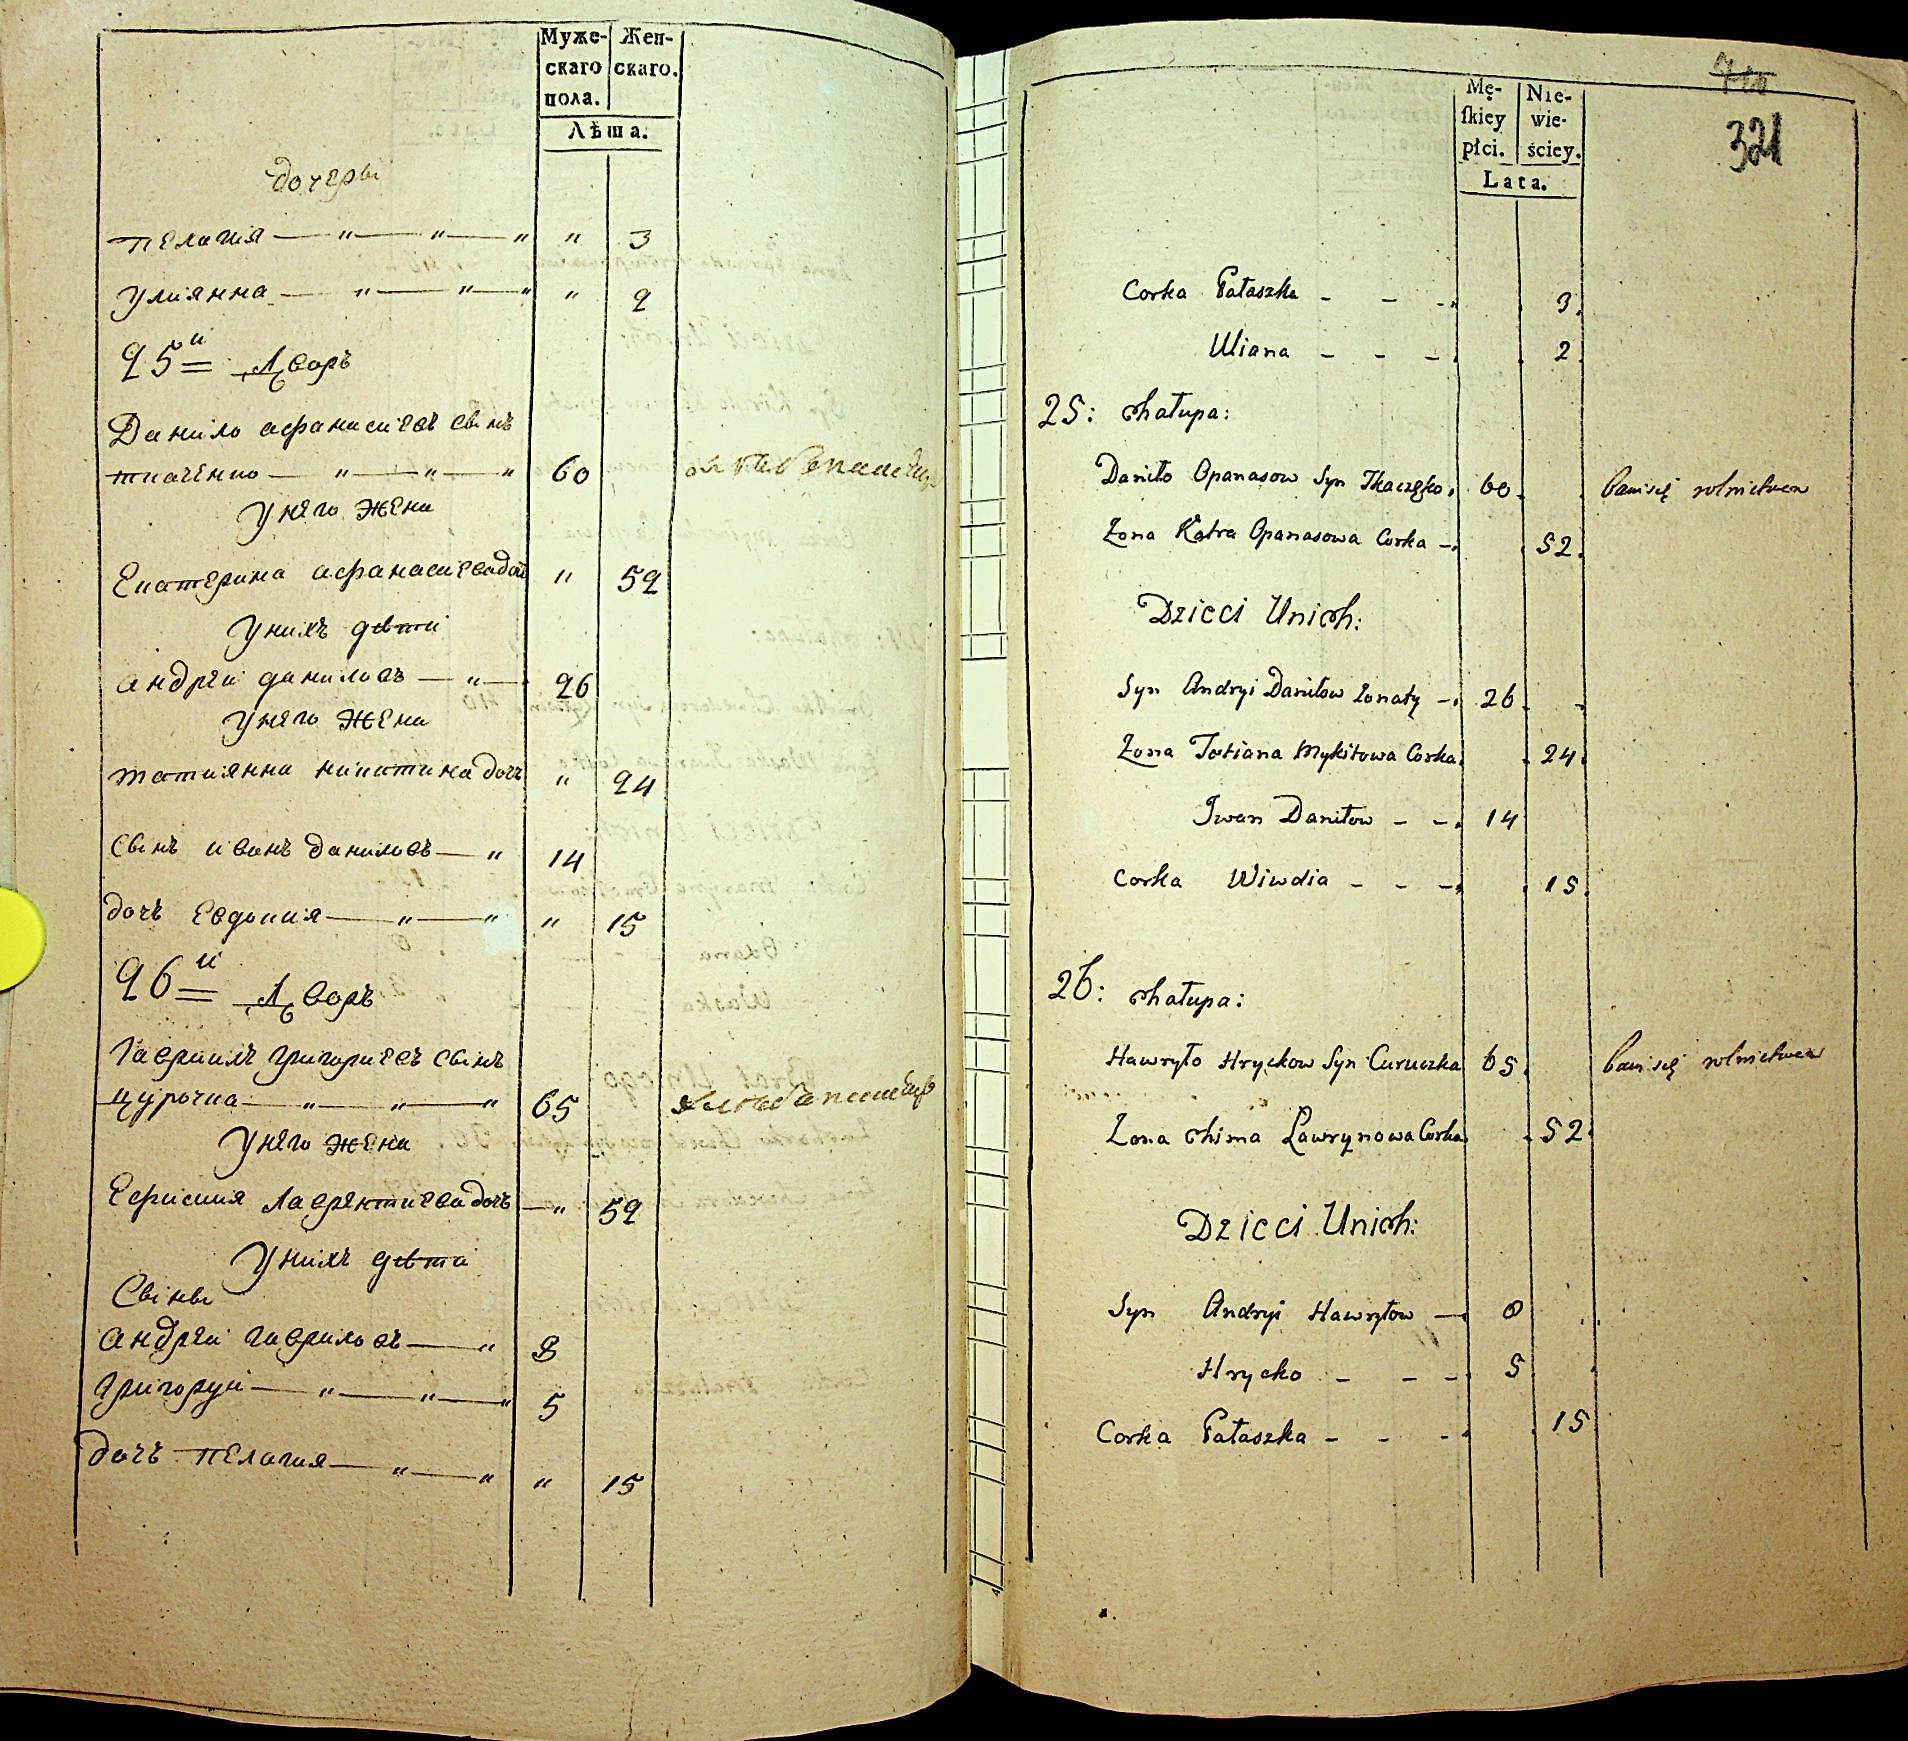 Муже-
скаго
пола.
Жен-
скаго.
Лѣта.
дочеры
пелагия — " — " — " " 3
улиянна — " — " — " " 2
25й Дворъ
Данило афанасиевъ сынъ
ткаченко — " — " — " 60
У него жена
Екатерина афанасиева доч " 52
У нихъ дѣти
андрей даниловъ — " — 26
У него жена
татиянна никитина дочь " 24
сынъ иванъ даниловъ — " 14
дочь Евдокия — " — " " 15
26й Дворъ
Гавриилъ григориевъ сынъ
цурочка — " — " — " 65
У него жена
Ефимия лаврентиева дочь — " 52
У нихъ дѣти
Сыны
андрей гавриловъ — " 8
григорий — " — " — " 5
дочь пелагия — " — " " 15
321
Mę-
skiey
płci.
Nie-
wie-
ściey.
Lata.
Corka Pałaszka - - - 3.
Uliana - - - 2
25: Chałupa:
Daniło Opanasow Syn Tkaczęko. 60. bawi się rolnictwem
Żona Katra Opanasowa Corka - 52.
Dzieci Unich:
Syn Andryi Daniłow żonaty - 26
Żona Tatiana Mykitowa Corka 24
Iwan Daniłow - - 14
Corka Wiwdia - - - 15.
26: Chałupa:
Hawryło Hryckow Syn Curuczka 65. bawi się rolnictwem
Żona Chima Ławrynowa Corka 52
Dzieci Unich:
Syn Andryi Hawryłow — 8
Hrycko - - - 5
Corka Pałaszka - - - 15